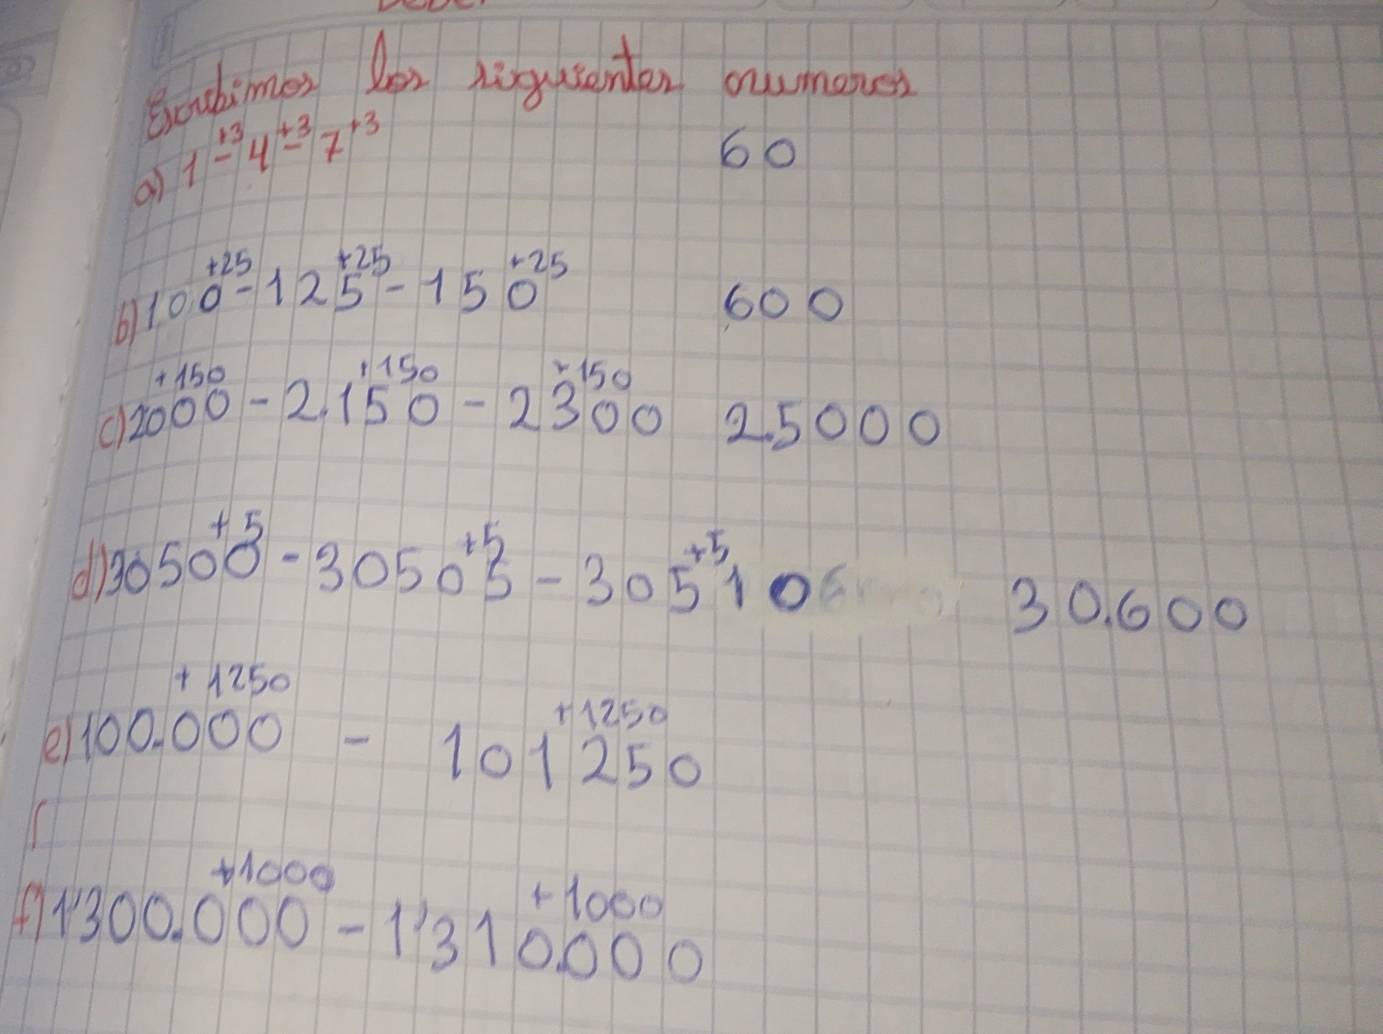 Escribimos los siguientes numeros
a) 1 +3 - 4 +3 - 7 +3 60
b) 100 +25 - 125 +25 - 150 +25 600
c) 2000 +150 - 2.150 +150 - 2300 +150 25000
d) 30500 +5 - 30505 +5 - 30510 +5 30.600
e) 100.000 +1250 - 101250 +1250
f) 1'300.000 +1000 - 1'310.000 +1000